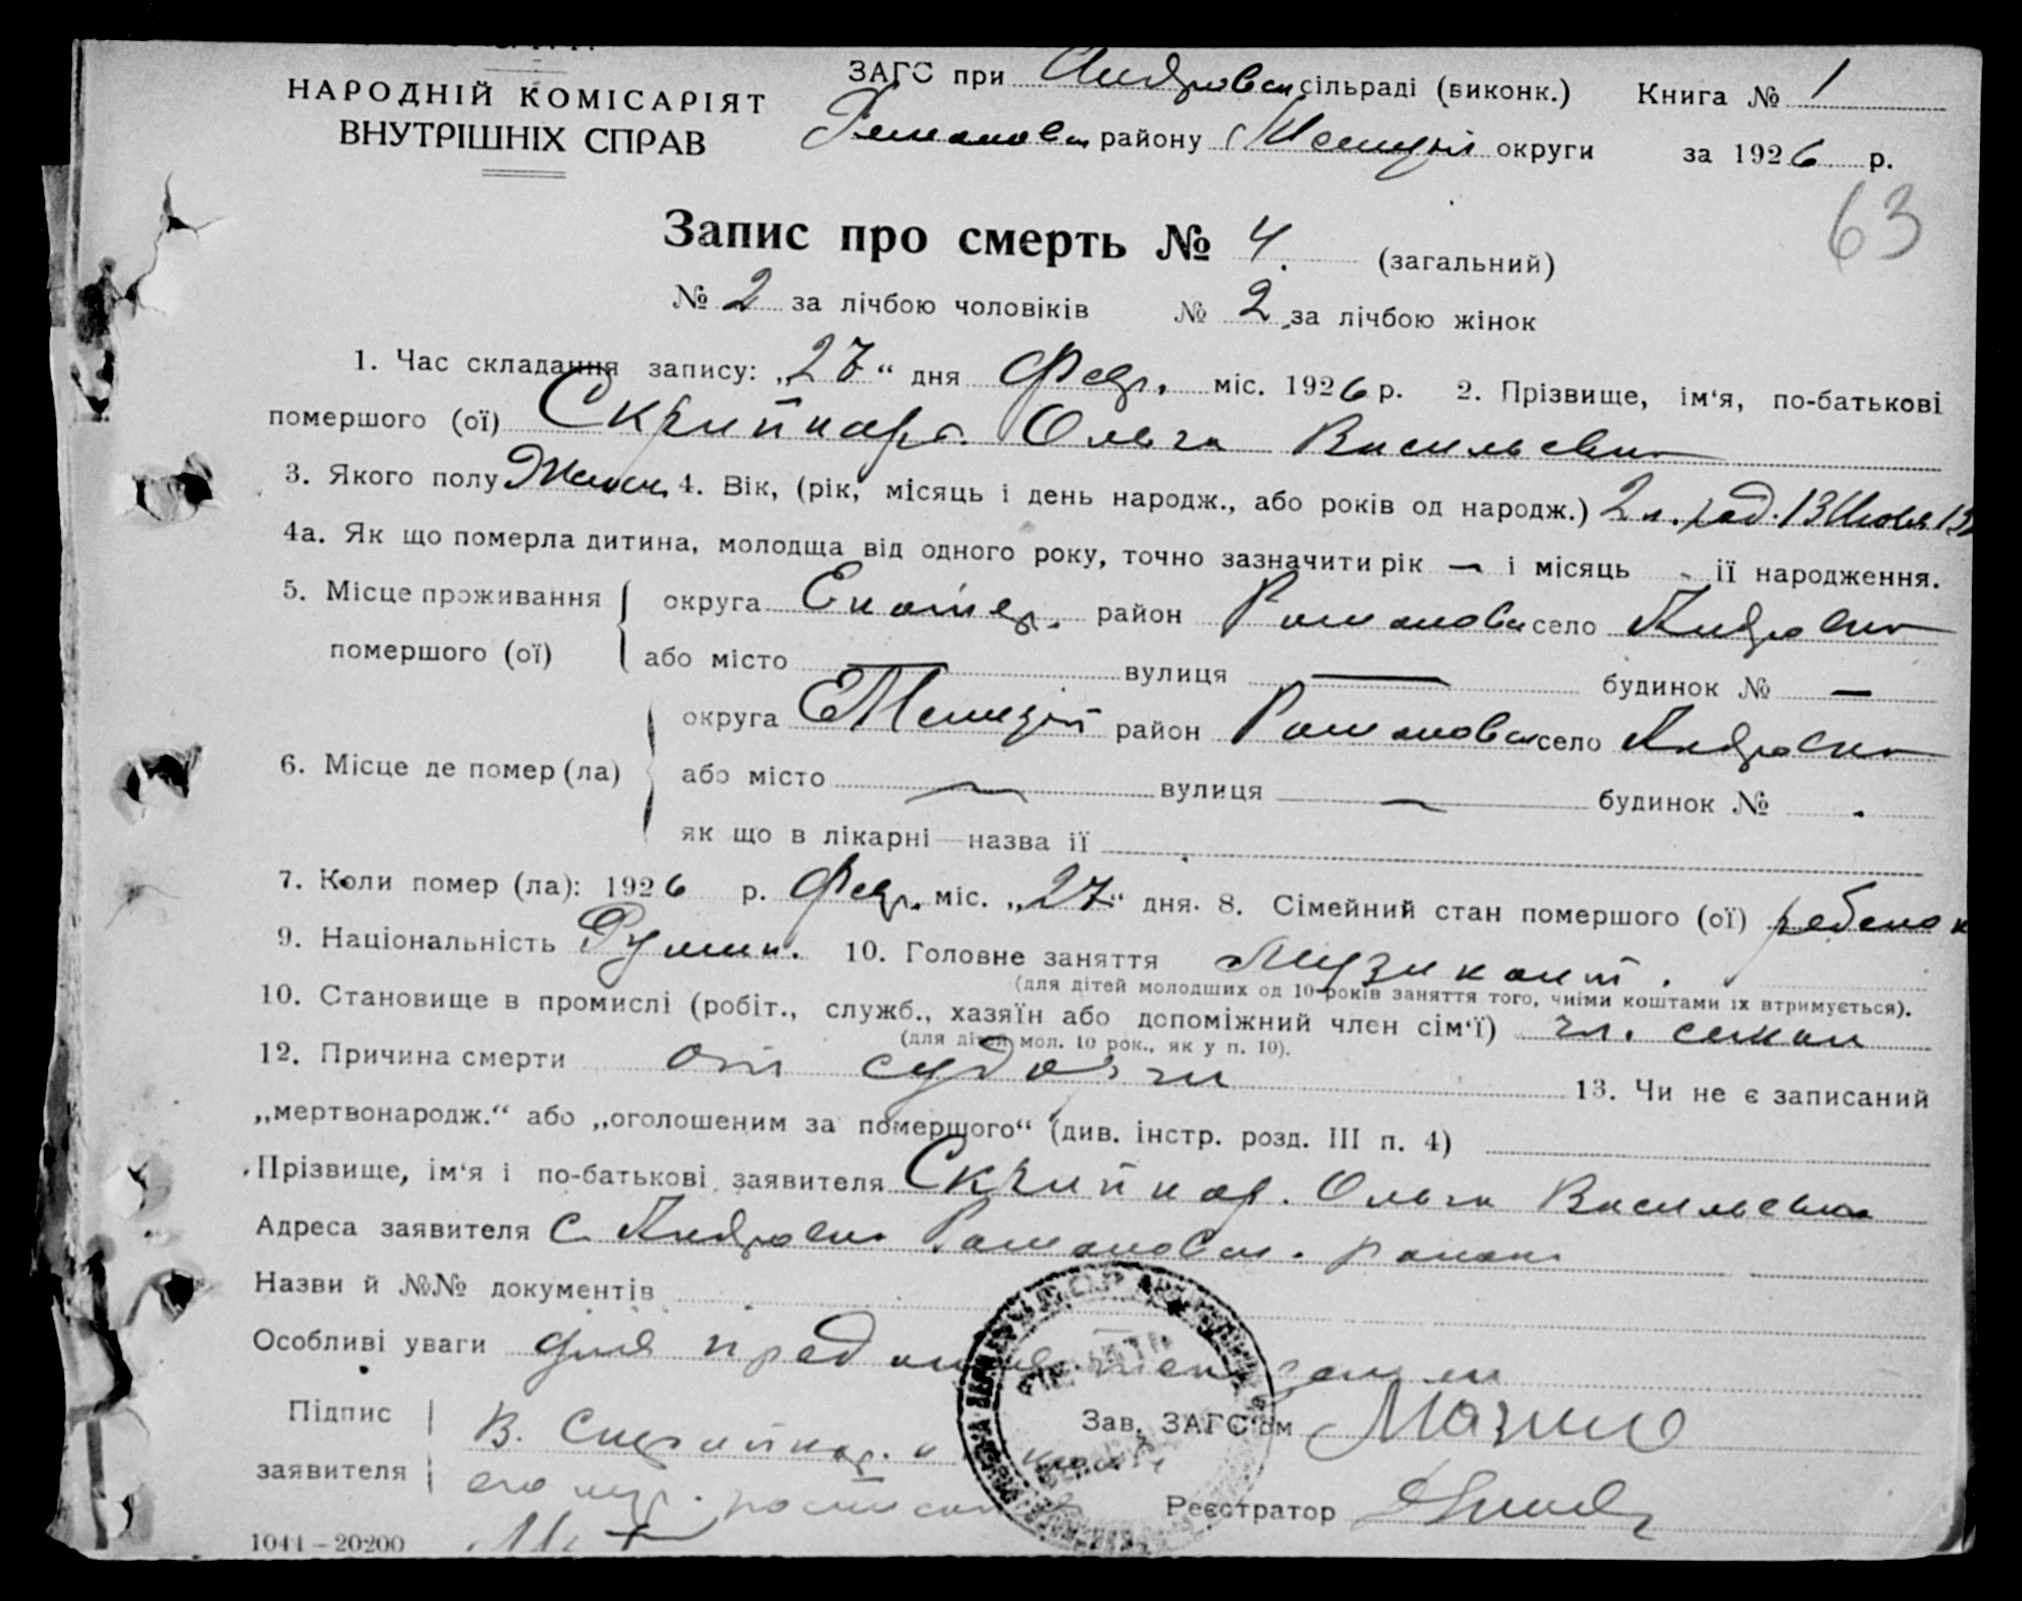 НАРОДНІЙ КОМІСАРІЯТ
ВНУТРІШНІХ СПРАВ
ЗАГС при сільраді (виконк.) Книга № 1
району округи за 1926 р.
63
Запис про смерть № 4. (загальний)
№ 2 за лічбою чоловіків № 2 за лічбою жінок
1. Час складання запису: „27“ дня Февр. міс. 1926 р. 2. Прізвище, ім‘я, по-батькові
помершого (ої) Ольга Васильевна
3. Якого полу Женск. 4. Вік, (рік, місяць і день народж., або років од народж.) 2 л. 13 Июля 19
4а. Як що померла дитина, молодща від одного року, точно зазначити рік — і місяць - її народження.
5. Місце проживання помершого (ої) округа район Романовск село Андровка
або місто — вулиця — будинок № —
6. Місце де помер (ла) округа район Романовск село Андровка
або місто — вулиця — будинок №
як що в лікарні—назва її
7. Коли помер (ла): 1926 р. Февр. міс. „27“ дня. 8. Сімейний стан помершого (ої) ребенок
9. Національність Румын. 10. Головне заняття Музикант.
(для дітей молодших од 10 років заняття того, чиїми коштами їх втримується).
10. Становище в промислі (робіт., служб., хазяїн або допоміжний член сім‘ї) чл. семьи
(для дітей мол. 10 рок., як у п. 10).
12. Причина смерти от судорги 13. Чи не є записаний
„мертвонародж.“ або „оголошеним за помершого“ (див. інстр. розд. III п. 4)
Прізвище, ім‘я і по-батькові заявителя Ольга Васильевна
Адреса заявителя с. Андровка Романовск. района
Назви й №№ документів
Особливі уваги для
Підпис заявителя В.
Зав. ЗАГС‘ом
Реєстратор
1044—20200